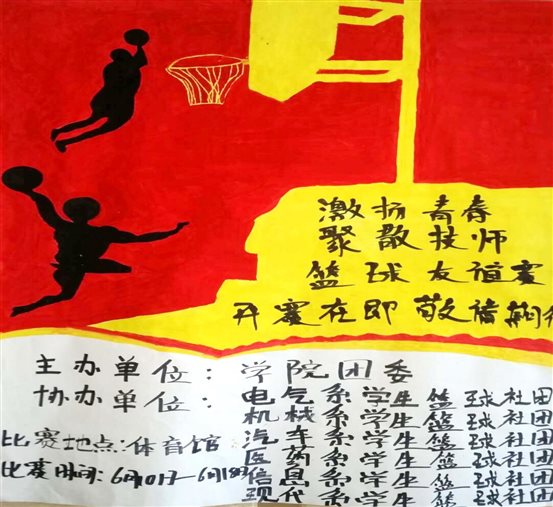 激扬青春
聚散技师
篮球友谊赛
开赛在即 敬请
主办单位：学院团委
协办单位：电气系学生篮球社团
机械系学生篮球社团
比赛地点：体育馆 汽车系学生篮球社团
医药系学生篮球社团
比赛时间：6月10日—6月18日 信息系学生篮球社团
现代系学生篮球社团